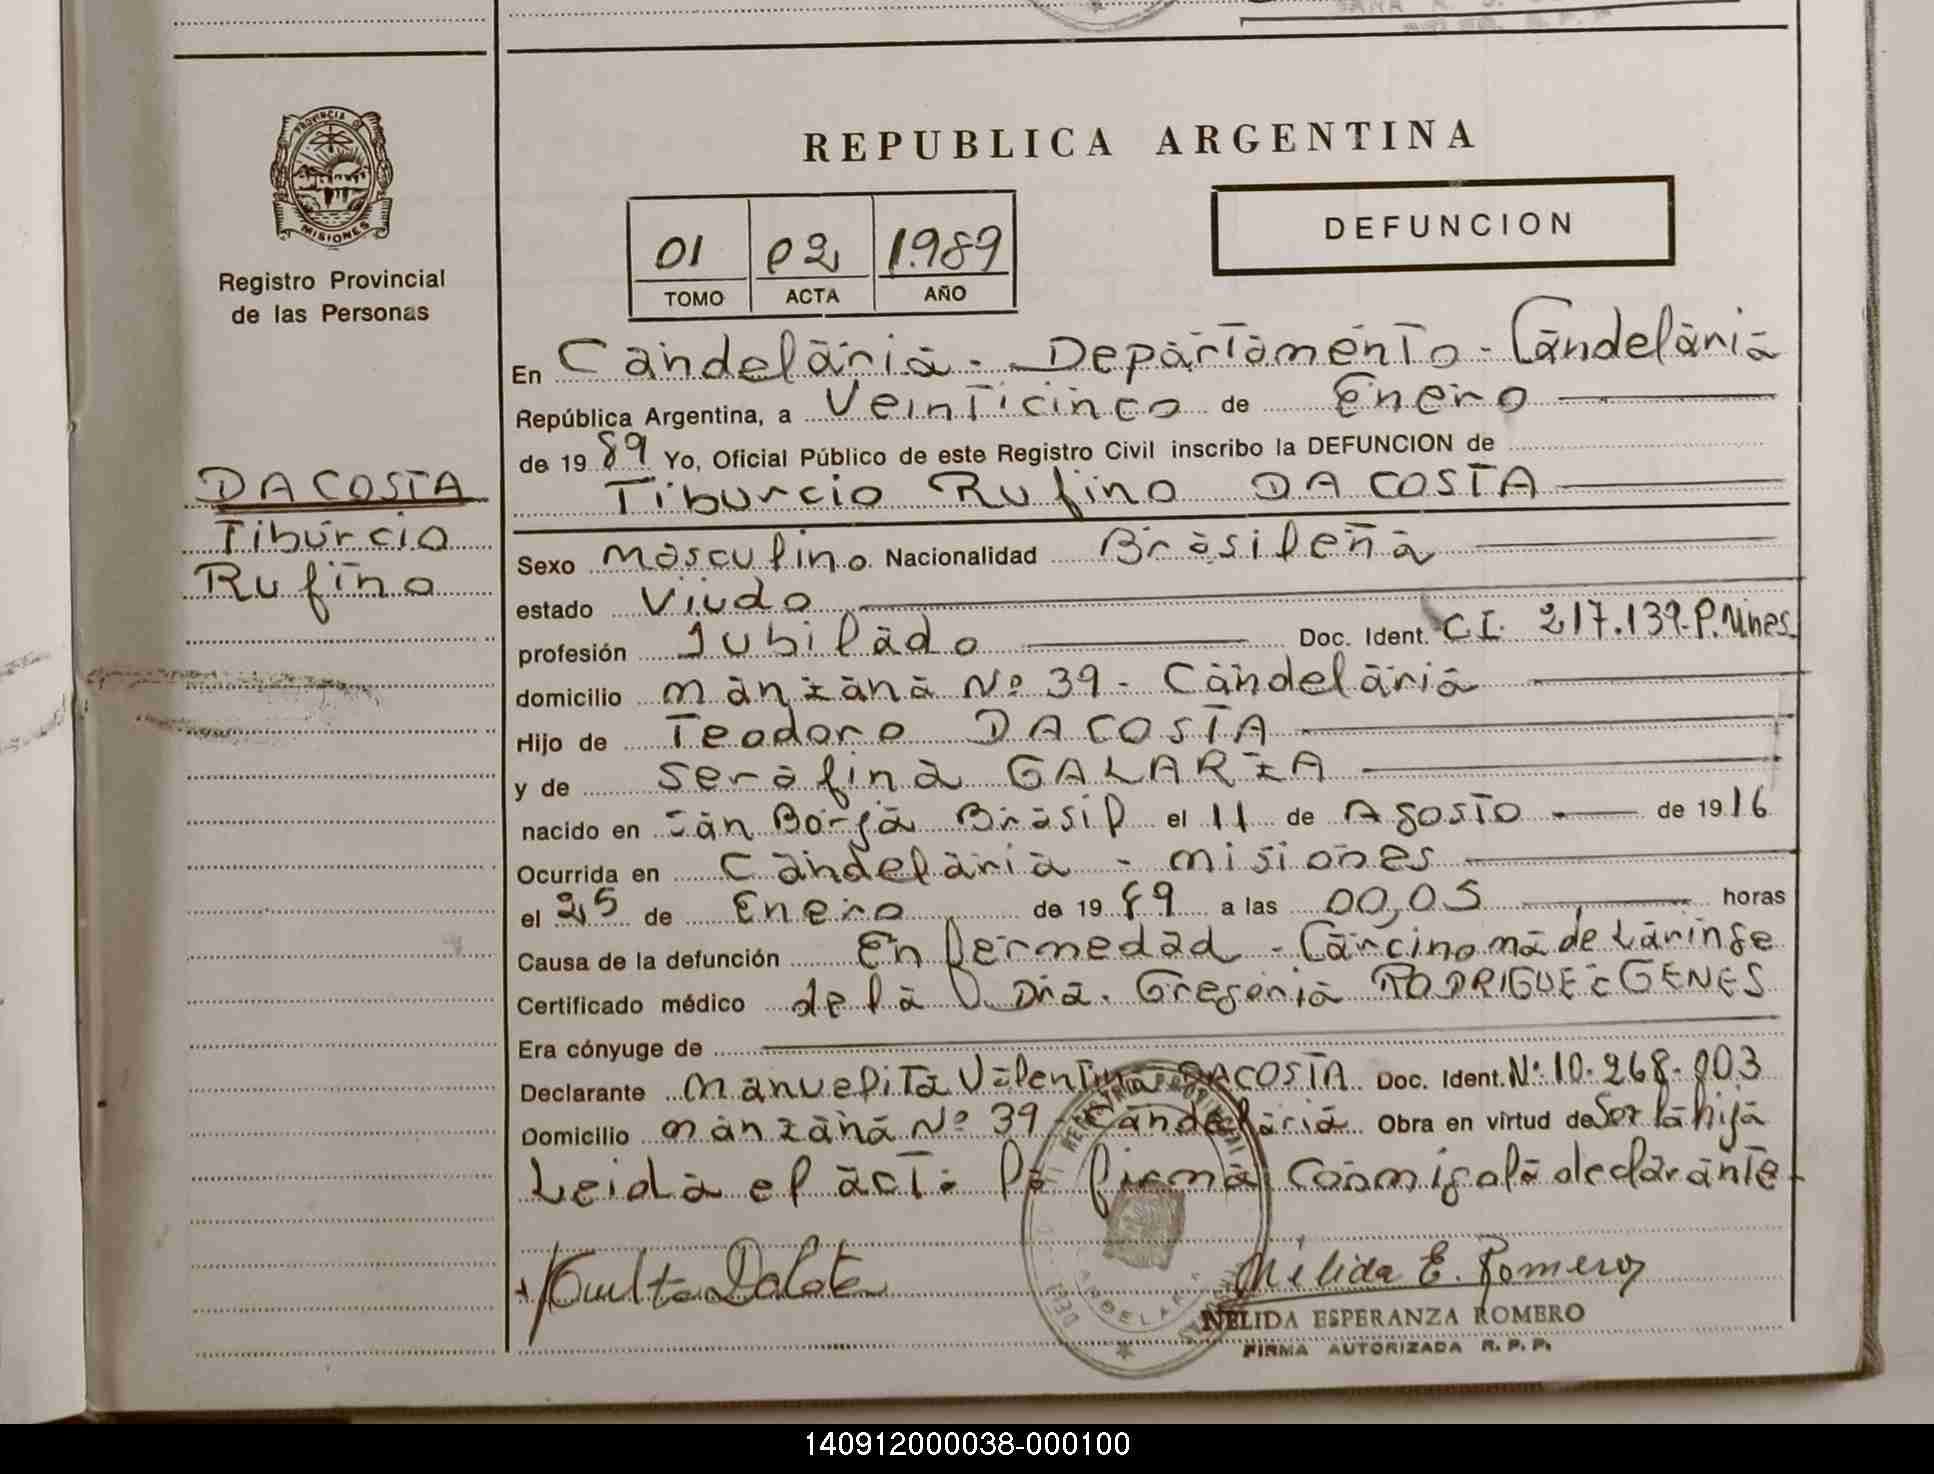 PROVINCIA DE
MISIONES
Registro Provincial
de las Personas
DA COSTA
Tiburcio
Rufino
REPUBLICA ARGENTINA
01 02 1.989
TOMO ACTA AÑO
DEFUNCION
En Candelaria - Departamento - Candelaria
República Argentina, a Veinticinco de Enero
de 19 89 Yo, Oficial Público de este Registro Civil inscribo la DEFUNCION de
Tiburcio Rufino DA COSTA
Sexo Masculino Nacionalidad Brasileña
estado Viudo
profesión Jubilado Doc. Ident. C.I. 217.139-P.Mnes.
domicilio manzana Nº 39 - Candelaria
Hijo de Teodoro DA COSTA
y de Serafina GALARZA
nacido en San Borja Brasil el 11 de Agosto de 19 16
Ocurrida en Candelaria - Misiones
el 25 de Enero de 19 89 a las 00,05 horas
Causa de la defunción Enfermedad - Carcinoma de Laringe
Certificado médico de la Dra. Gregoria RODRIGUEZ GENES
Era cónyuge de
Declarante Manuelita Valentina DACOSTA Doc. Ident. Nº 10.268.003
Domicilio manzana Nº 39 - Candelaria Obra en virtud de Ser la hija
Leida el acta la firma conmigo la declarante
Nélida E. Romero
NELIDA ESPERANZA ROMERO
FIRMA AUTORIZADA R. P. P.
140912000038-000100